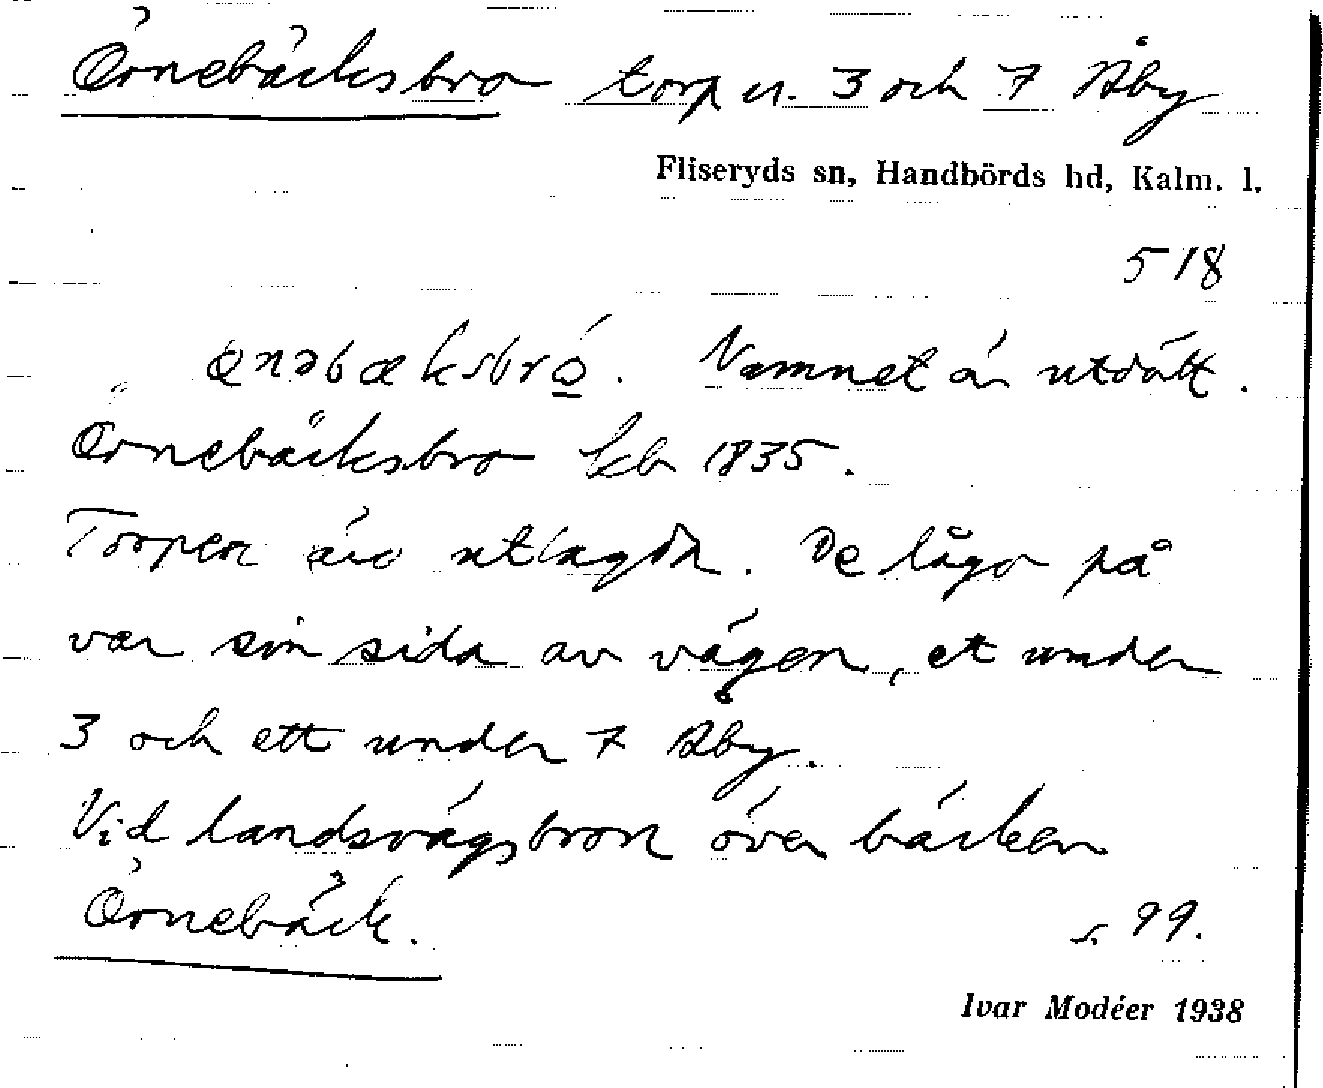 Örnebäcksbro torp u. 3 och 7 Åby
Fliseryds sn, Handbörds hd, Kalm. l.
518
Namnet är utdött.
Örnebäcksbro kb 1835.
Torpen äro utlagda. De lågo på
var sin sida av vägen, ett under
3 och ett under 7 Åby.
Vid landsvägsbron över bäcken
Örnebäck.
s. 99.
Ivar Modéer 1938